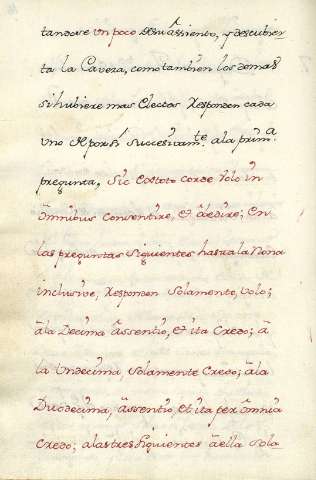 tandose un poco de su assiento, y descubier-
ta la Caveza, como tambien los demas
si hubiere mas Electos Responden cada
uno de por sí successivamte. a la prima.
pregunta, Sic ex toto corde Volo in
omnibus consentire, et obedire; En
las preguntas siguientes hasta la Nona
inclusive, Responden solamente, Volo;
à la Decima Assentio, et ita Credo; à
la Undecima, solamente Credo; à la
Duodecima, assentio, et ita per omnia
Credo; a las tres siguientes à ella sola